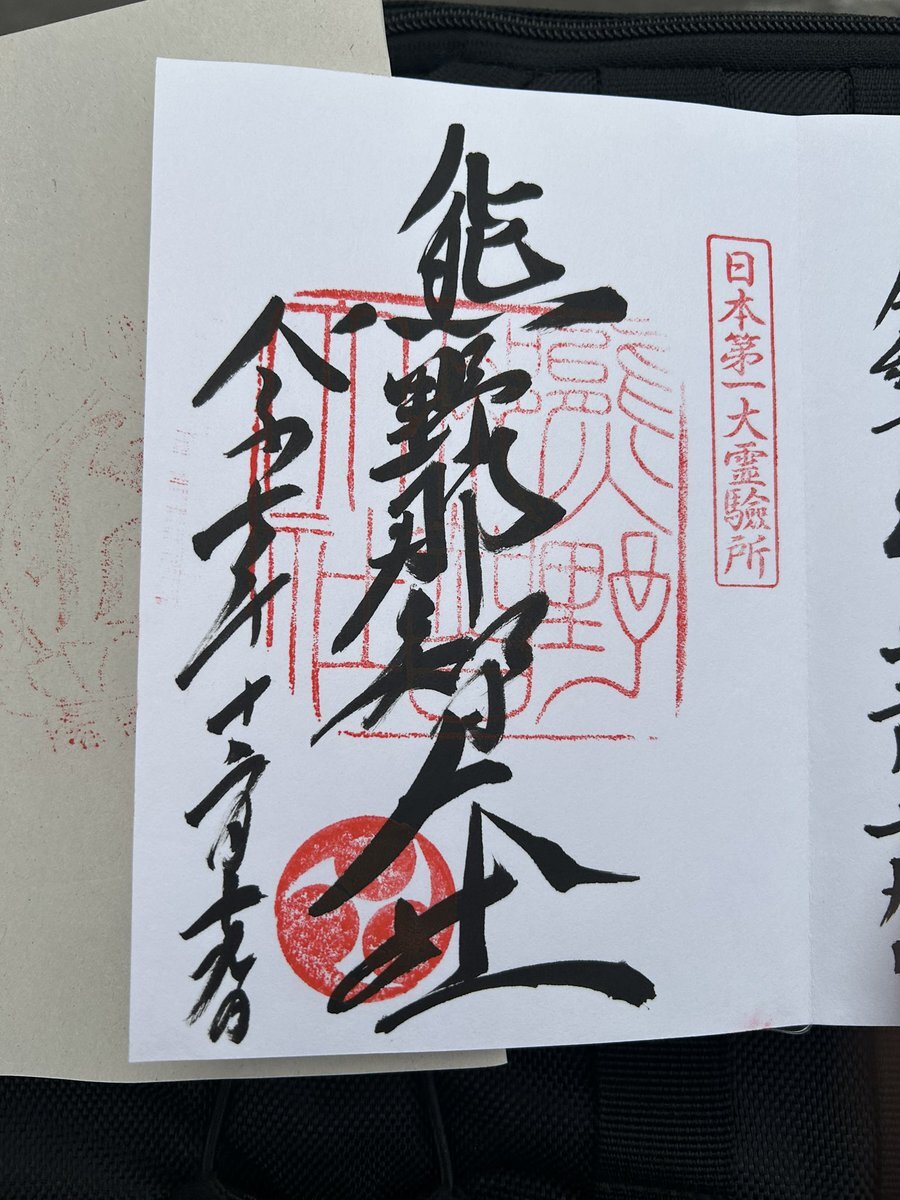 日本第一大霊驗所
熊野那智大社
令和七年十二月十九日